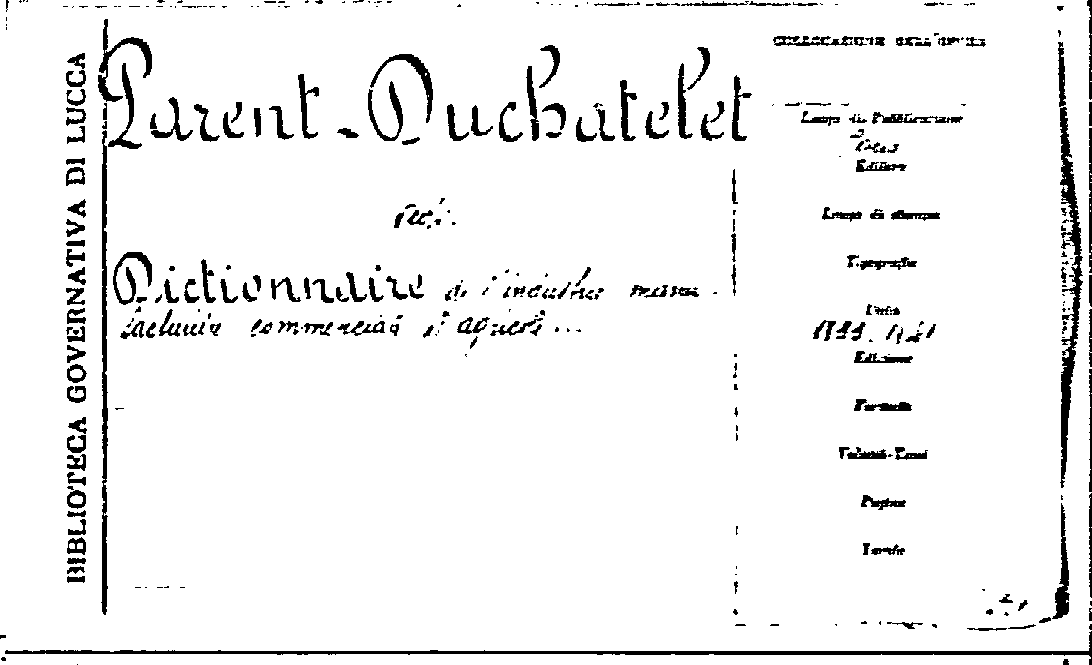 BIBLIOTECA GOVERNATIVA DI LUCCA
Parent-Duchatelet
Dictionnaire de l'industrie manu-
facturière commerciale et agricole ...
COLLOCAZIONE DELL'OPERA
Luogo di Pubblicazione
Editore
Luogo di stampa
Tipografia
Data
Edizione
Formato
Volumi-Tomi
Pagine
Tavole